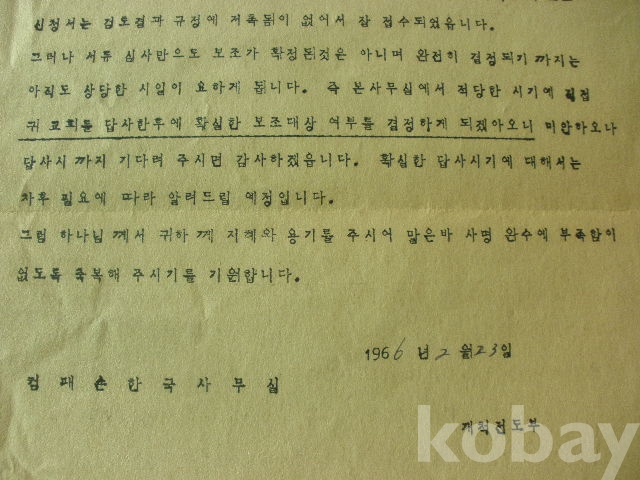 신청서는 검토결과 규정에 저촉됨이 없어서 잘 접수되었읍니다.
그러나 서류 심사만으로 보조가 확정된것은 아니며 완전히 결정되기 까지는
아직도 상당한 시일이 요하게 됩니다. 즉 본사무실에서 적당한 시기에 직접
귀 교회를 답사한후에 확실한 보조대상 여부를 결정하게 되겠아오니 미안하오나
답사시 까지 기다려 주시면 감사하겠읍니다. 확실한 답사시기에 대해서는
차후 필요에 따라 알려드릴 예정입니다.
그럼 하나님 께서 귀하 께 지혜와 용기를 주시어 맡은바 사명 완수에 부족함이
없도록 축복해 주시기를 기원합니다.
1966 년 2 월 23일
컴 패 손 한 국 사 무 실
개척전도부
kobay